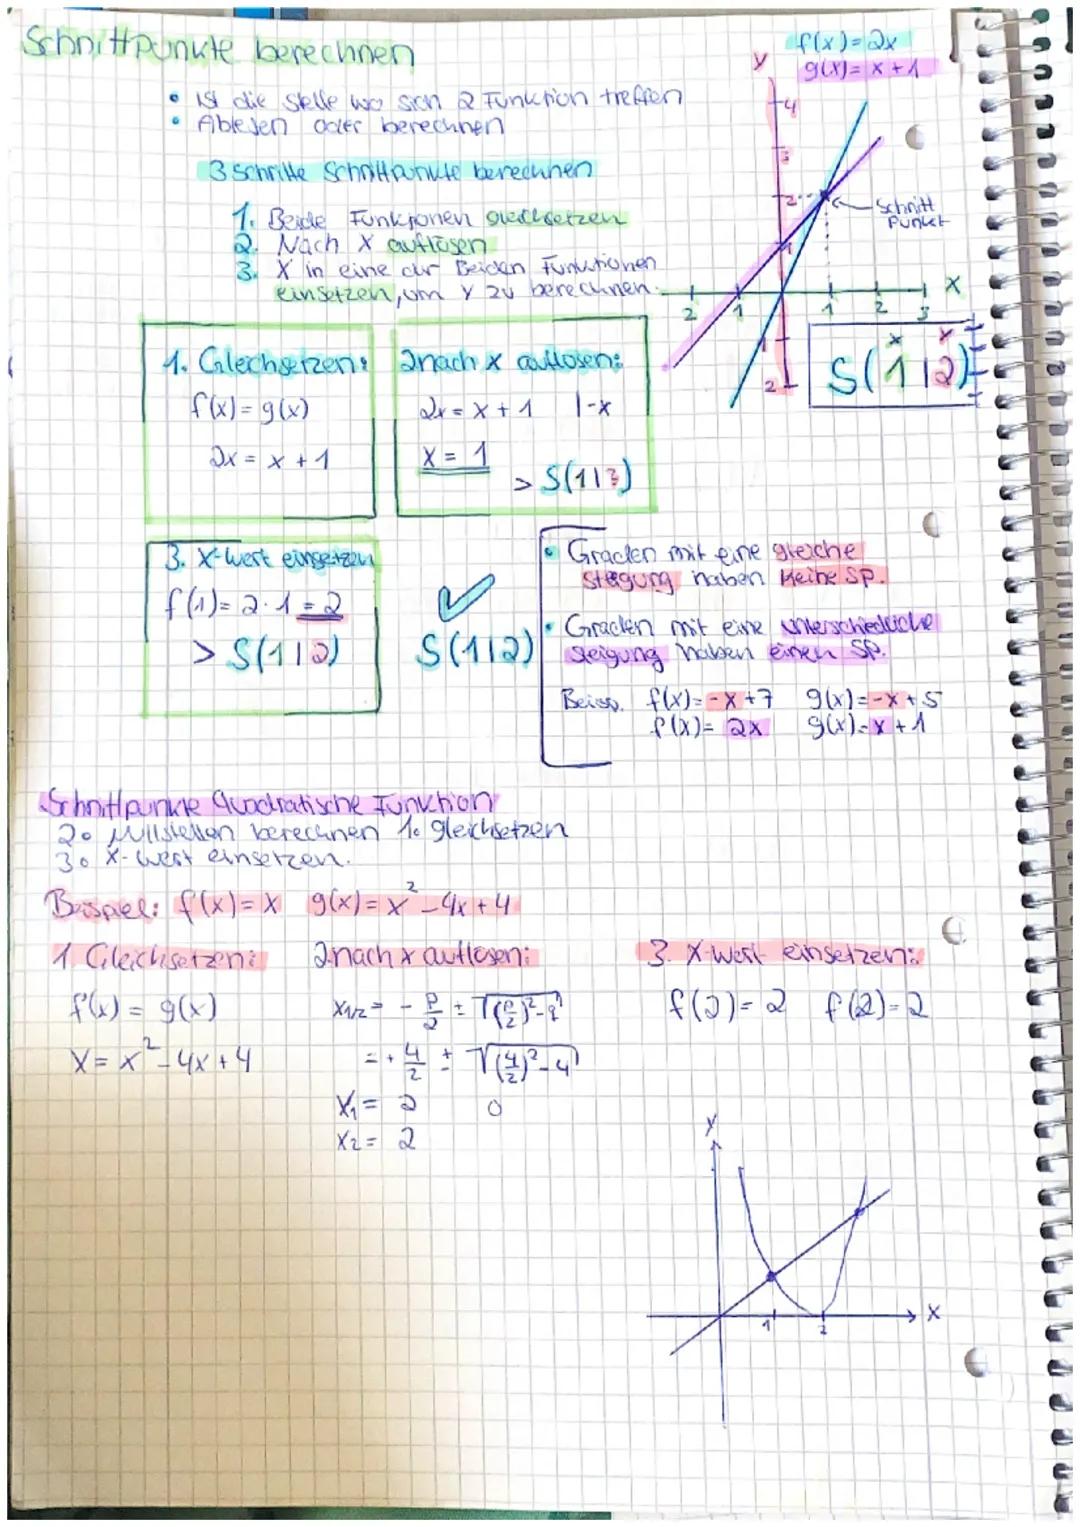 Schnittpunkte berechnen
f(x)=2x
g(x)=x+1
• ist die Stelle wo sich 2 Funktion treffen
• Ablesen oder berechnen
3 Schritte Schnittpunkte berechnen
1. Beide Funktionen gleichsetzen
2. Nach x auflösen
3. X in eine der Beiden Funktionen
einsetzen, um y zu berechnen.
y
4
3
2
1
Schnitt
Punkt
x
2 1 1 2 3
1
2
x y
S(1|2)
1. Gleichsetzen:
f(x)=g(x)
2x = x+1
2 nach x auflösen:
2x = x+1 |-x
x = 1
> S(1|?)
3. X-Wert einsetzen
f(1)= 2·1 = 2
> S(1|2)
S(1|2)
• Graden mit eine gleiche
steigung haben keine SP.
• Graden mit eine unterschiedliche
steigung haben einen SP.
Beisp. f(x)=-x+7 g(x)=-x+5
f(x)= 2x g(x)=x+1
Schnittpunkte Quadratische Funktion
2. Nullstellen berechnen 1. gleichsetzen
3. X-Wert einsetzen.
Beispiel: f(x)=x g(x)=x²-4x+4
1. Gleichsetzen:
f(x) = g(x)
x = x²-4x+4
2. nach x auflösen:
x1/2 = - p/2 ± √((p/2)²-q)
= + 4/2 ± √((4/2)²-4)
x₁ = 2 0
x₂ = 2
3. X-Wert einsetzen:
f(2)=2 f(2)=2
y
x
1 2